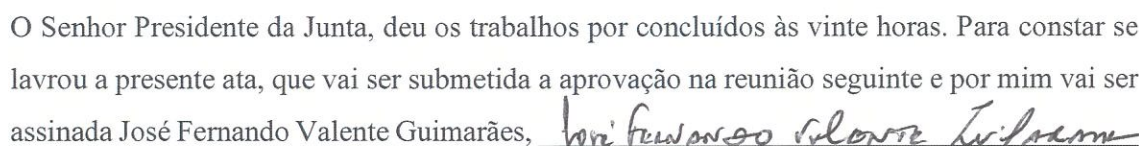 O Senhor Presidente da Junta, deu os trabalhos por concluídos às vinte horas. Para constar se
lavrou a presente ata, que vai ser submetida a aprovação na reunião seguinte e por mim vai ser
assinada José Fernando Valente Guimarães, José Fernando Valente Guimarães